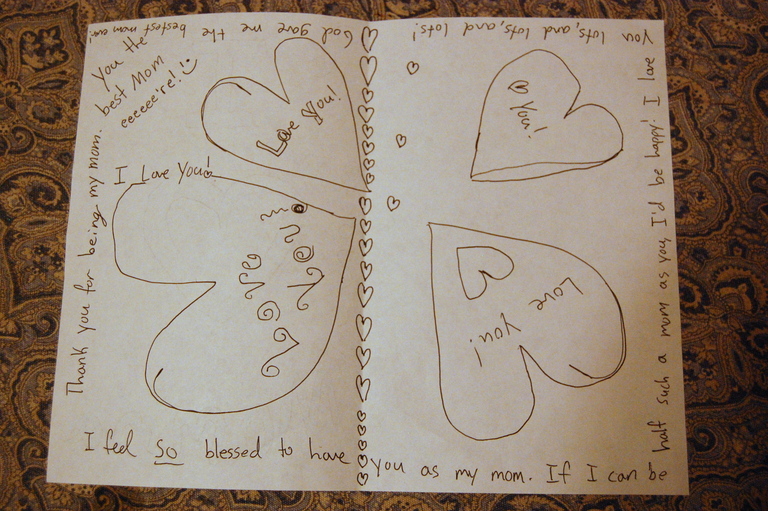 Thank you for being my mom.
You the
best Mom
eeeeee're!!
I feel so blessed to have you as my mom. If I can be
half such a mom as you, I'd be happy! I love
you lots, and lots, and lots!
God gave me the bestest mom ever!
Love You!
I Love You!
Love
you!
♡ You!
Love
You!